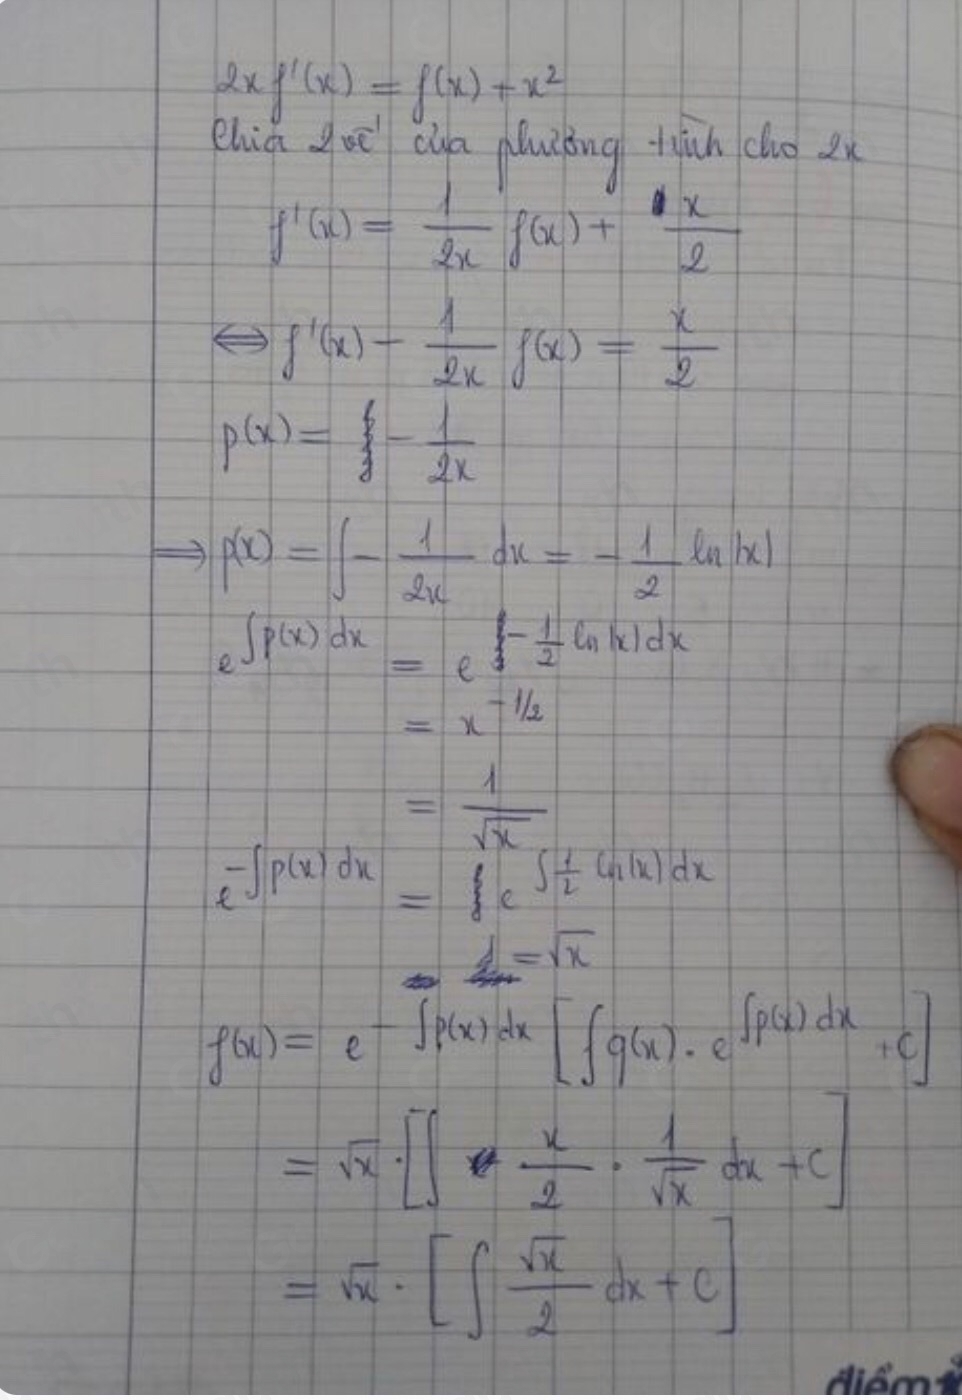 2x f'(x) = f(x) + x²
Chia 2 vế của phương trình cho 2x
f'(x) = 1/2x f(x) + x/2
⇔ f'(x) − 1/2x f(x) = x/2
p(x) = − 1/2x
⇒ p(x) = ∫ − 1/2x dx = − 1/2 ln|x|
e^∫p(x) dx = e^− 1/2 ln|x| dx
= x^−1/2
= 1/√x
e^−∫p(x) dx = e^∫ 1/2 ln|x| dx
= √x
f(x) = e^− ∫p(x) dx [∫ q(x) . e^∫p(x) dx + C]
= √x . [∫ x/2 . 1/√x dx + C]
= √x . [∫ √x/2 dx + C]